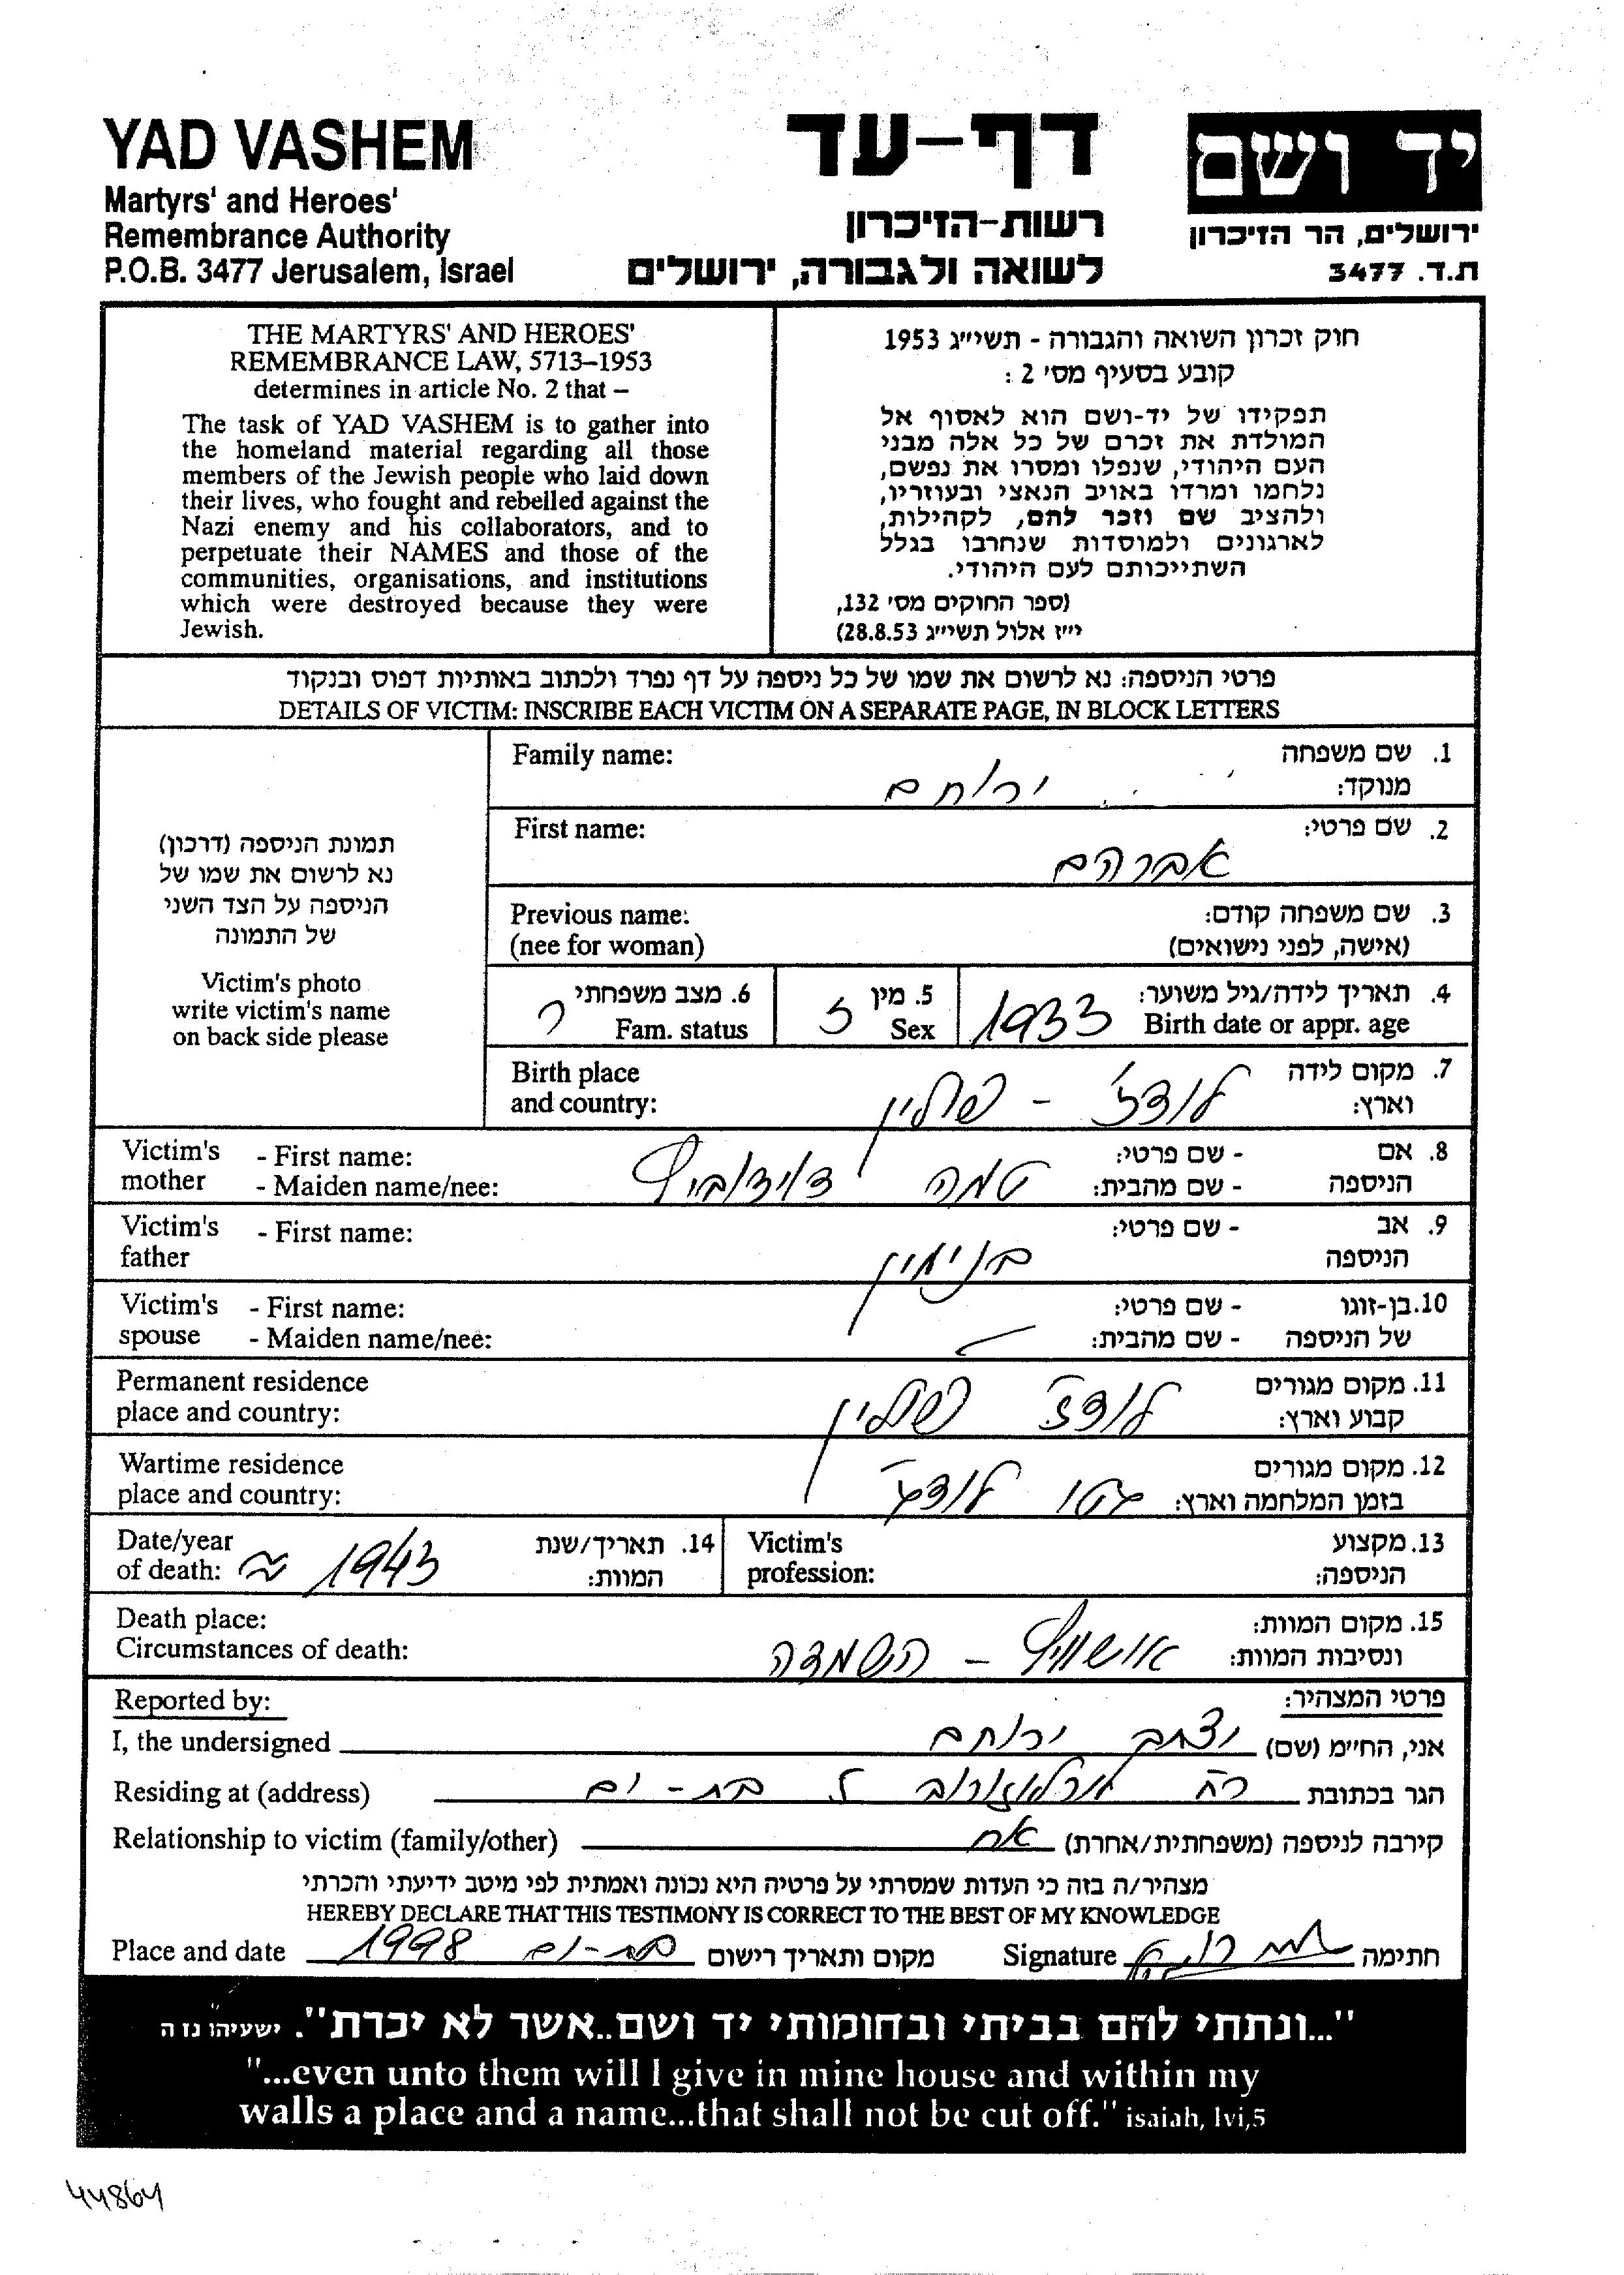 YAD VASHEM
Martyrs' and Heroes'
Remembrance Authority
P.O.B. 3477 Jerusalem, Israel
דף-עד
רשות-הזיכרון
לשואה ולגבורה, ירושלים
יד ושם
ירושלים, הר הזיכרון
ת.ד. 3477
THE MARTYRS' AND HEROES'
REMEMBRANCE LAW, 5713–1953
determines in article No. 2 that –
The task of YAD VASHEM is to gather into
the homeland material regarding all those
members of the Jewish people who laid down
their lives, who fought and rebelled against the
Nazi enemy and his collaborators, and to
perpetuate their NAMES and those of the
communities, organisations, and institutions
which were destroyed because they were
Jewish.
חוק זכרון השואה והגבורה - תשי״ג 1953
קובע בסעיף מס׳ 2 :
תפקידו של יד-ושם הוא לאסוף אל
המולדת את זכרם של כל אלה מבני
העם היהודי, שנפלו ומסרו את נפשם,
נלחמו ומרדו באויב הנאצי ובעוזריו,
ולהציב שם וזכר להם, לקהילות,
לארגונים ולמוסדות שנחרבו בגלל
השתייכותם לעם היהודי.
(ספר החוקים מס׳ 132,
י״ז אלול תשי״ג 28.8.53)
פרטי הניספה: נא לרשום את שמו של כל ניספה על דף נפרד ולכתוב באותיות דפוס ובנקוד
DETAILS OF VICTIM: INSCRIBE EACH VICTIM ON A SEPARATE PAGE, IN BLOCK LETTERS
תמונת הניספה (דרכון)
נא לרשום את שמו של
הניספה על הצד השני
של התמונה
Victim's photo
write victim's name
on back side please
1. שם משפחה Family name:
מנוקד: ירוחם
2. שם פרטי: First name:
אברהם
3. שם משפחה קודם: Previous name:
(אישה, לפני נישואים) (nee for woman)
4. תאריך לידה/גיל משוער: 5. מין 6. מצב משפחתי
Birth date or appr. age 1933 Sex ז Fam. status ר
7. מקום לידה Birth place
וארץ: לודז׳ - פולין and country:
8. אם - שם פרטי: Victim's - First name:
הניספה - שם מהבית: טמה דוידוביץ mother - Maiden name/nee:
9. אב - שם פרטי: Victim's - First name:
הניספה בנימין father
10. בן-זוגו - שם פרטי: Victim's - First name:
של הניספה - שם מהבית: spouse - Maiden name/nee:
11. מקום מגורים Permanent residence
קבוע וארץ: לודז׳ פולין place and country:
12. מקום מגורים Wartime residence
בזמן המלחמה וארץ: גטו לודז׳ place and country:
13. מקצוע Victim's 14. תאריך/שנת Date/year
הניספה: profession: המוות: of death: ≈ 1943
15. מקום המוות: Death place:
ונסיבות המוות: אושוויץ - השמדה Circumstances of death:
פרטי המצהיר: Reported by:
אני, החי״מ (שם) יצחק ירוחם I, the undersigned
הגר בכתובת רח׳ ארלוזורוב 7 בת-ים Residing at (address)
קירבה לניספה (משפחתית/אחרת) אח Relationship to victim (family/other)
מצהיר/ה בזה כי העדות שמסרתי על פרטיה היא נכונה ואמתית לפי מיטב ידיעתי והכרתי
HEREBY DECLARE THAT THIS TESTIMONY IS CORRECT TO THE BEST OF MY KNOWLEDGE
חתימה Signature מקום ותאריך רישום בת-ים 1998 Place and date
"...ונתתי להם בביתי ובחומותי יד ושם..אשר לא יכרת". ישעיהו נו ה
"...even unto them will I give in mine house and within my
walls a place and a name...that shall not be cut off." isaiah, lvi,5
44864